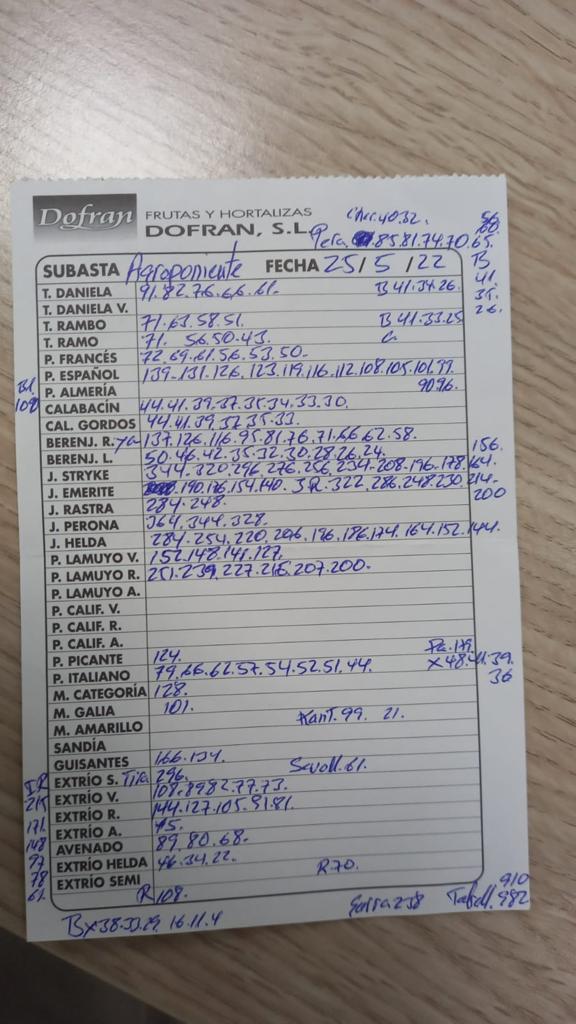 Dofran FRUTAS Y HORTALIZAS
DOFRAN, S.L.
Pera 85.81.74.70.65.
56
60.
B
41.
35.
26.
SUBASTA Agroponiente FECHA 25/5/22
T. DANIELA 91.82.76.66.61. B 41.34.26.
T. DANIELA V.
T. RAMBO 71.63.58.51. B 41.33.25
T. RAMO 71. 56.50.43.
P. FRANCÉS 72.69.61.56.53.50.
P. ESPAÑOL 139.131.126.123.119.116.112.108.105.101.99.
P. ALMERÍA 90.96.
Bl
108
CALABACÍN 44.41.39.37.35.34.33.30.
CAL. GORDOS 44.41.39.37.35.33.
BERENJ. R. 137.126.116.95.81.76.71.66.62.58.
BERENJ. L. 50.46.42.35.32.30.28.26.24.
J. STRYKE 344.320.296.276.256.234.208.196.178.164. 156.
J. EMERITE 190.176.154.140. SR.322.286.248.230.214.
200
J. RASTRA 284.248.
J. PERONA 364.344.328.
J. HELDA 284.254.220.206.196.186.174.164.152.144.
P. LAMUYO V. 152.148.141.127.
P. LAMUYO R. 251.239.227.216.207.200.
P. LAMUYO A.
P. CALIF. V.
P. CALIF. R.
P. CALIF. A.
P. PICANTE 124. Pa.179.
P. ITALIANO 79.66.62.57.54.52.51.44. X48.41.39.
36
M. CATEGORÍA 128.
M. GALIA 101.
M. AMARILLO Kant.99. 21.
SANDÍA
GUISANTES 166.134.
EXTRÍO S. Tira 296. Sevoll.61.
EXTRÍO V. 108.89.82.77.73.
EXTRÍO R. 144.127.105.91.81.
EXTRÍO A. 45.
AVENADO 89.80.68.
EXTRÍO HELDA 46.34.22.
EXTRÍO SEMI R70.
IR
215
171.
148
97
78
61.
R108.
BX38.33.29.16.11.4
238
910
982